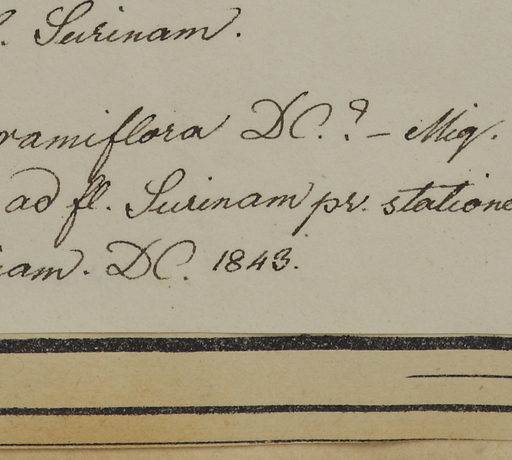 fl. Surinam.
ramiflora DC.? – Miq.
ad fl. Surinam pr. statione
iam. DC. 1843.